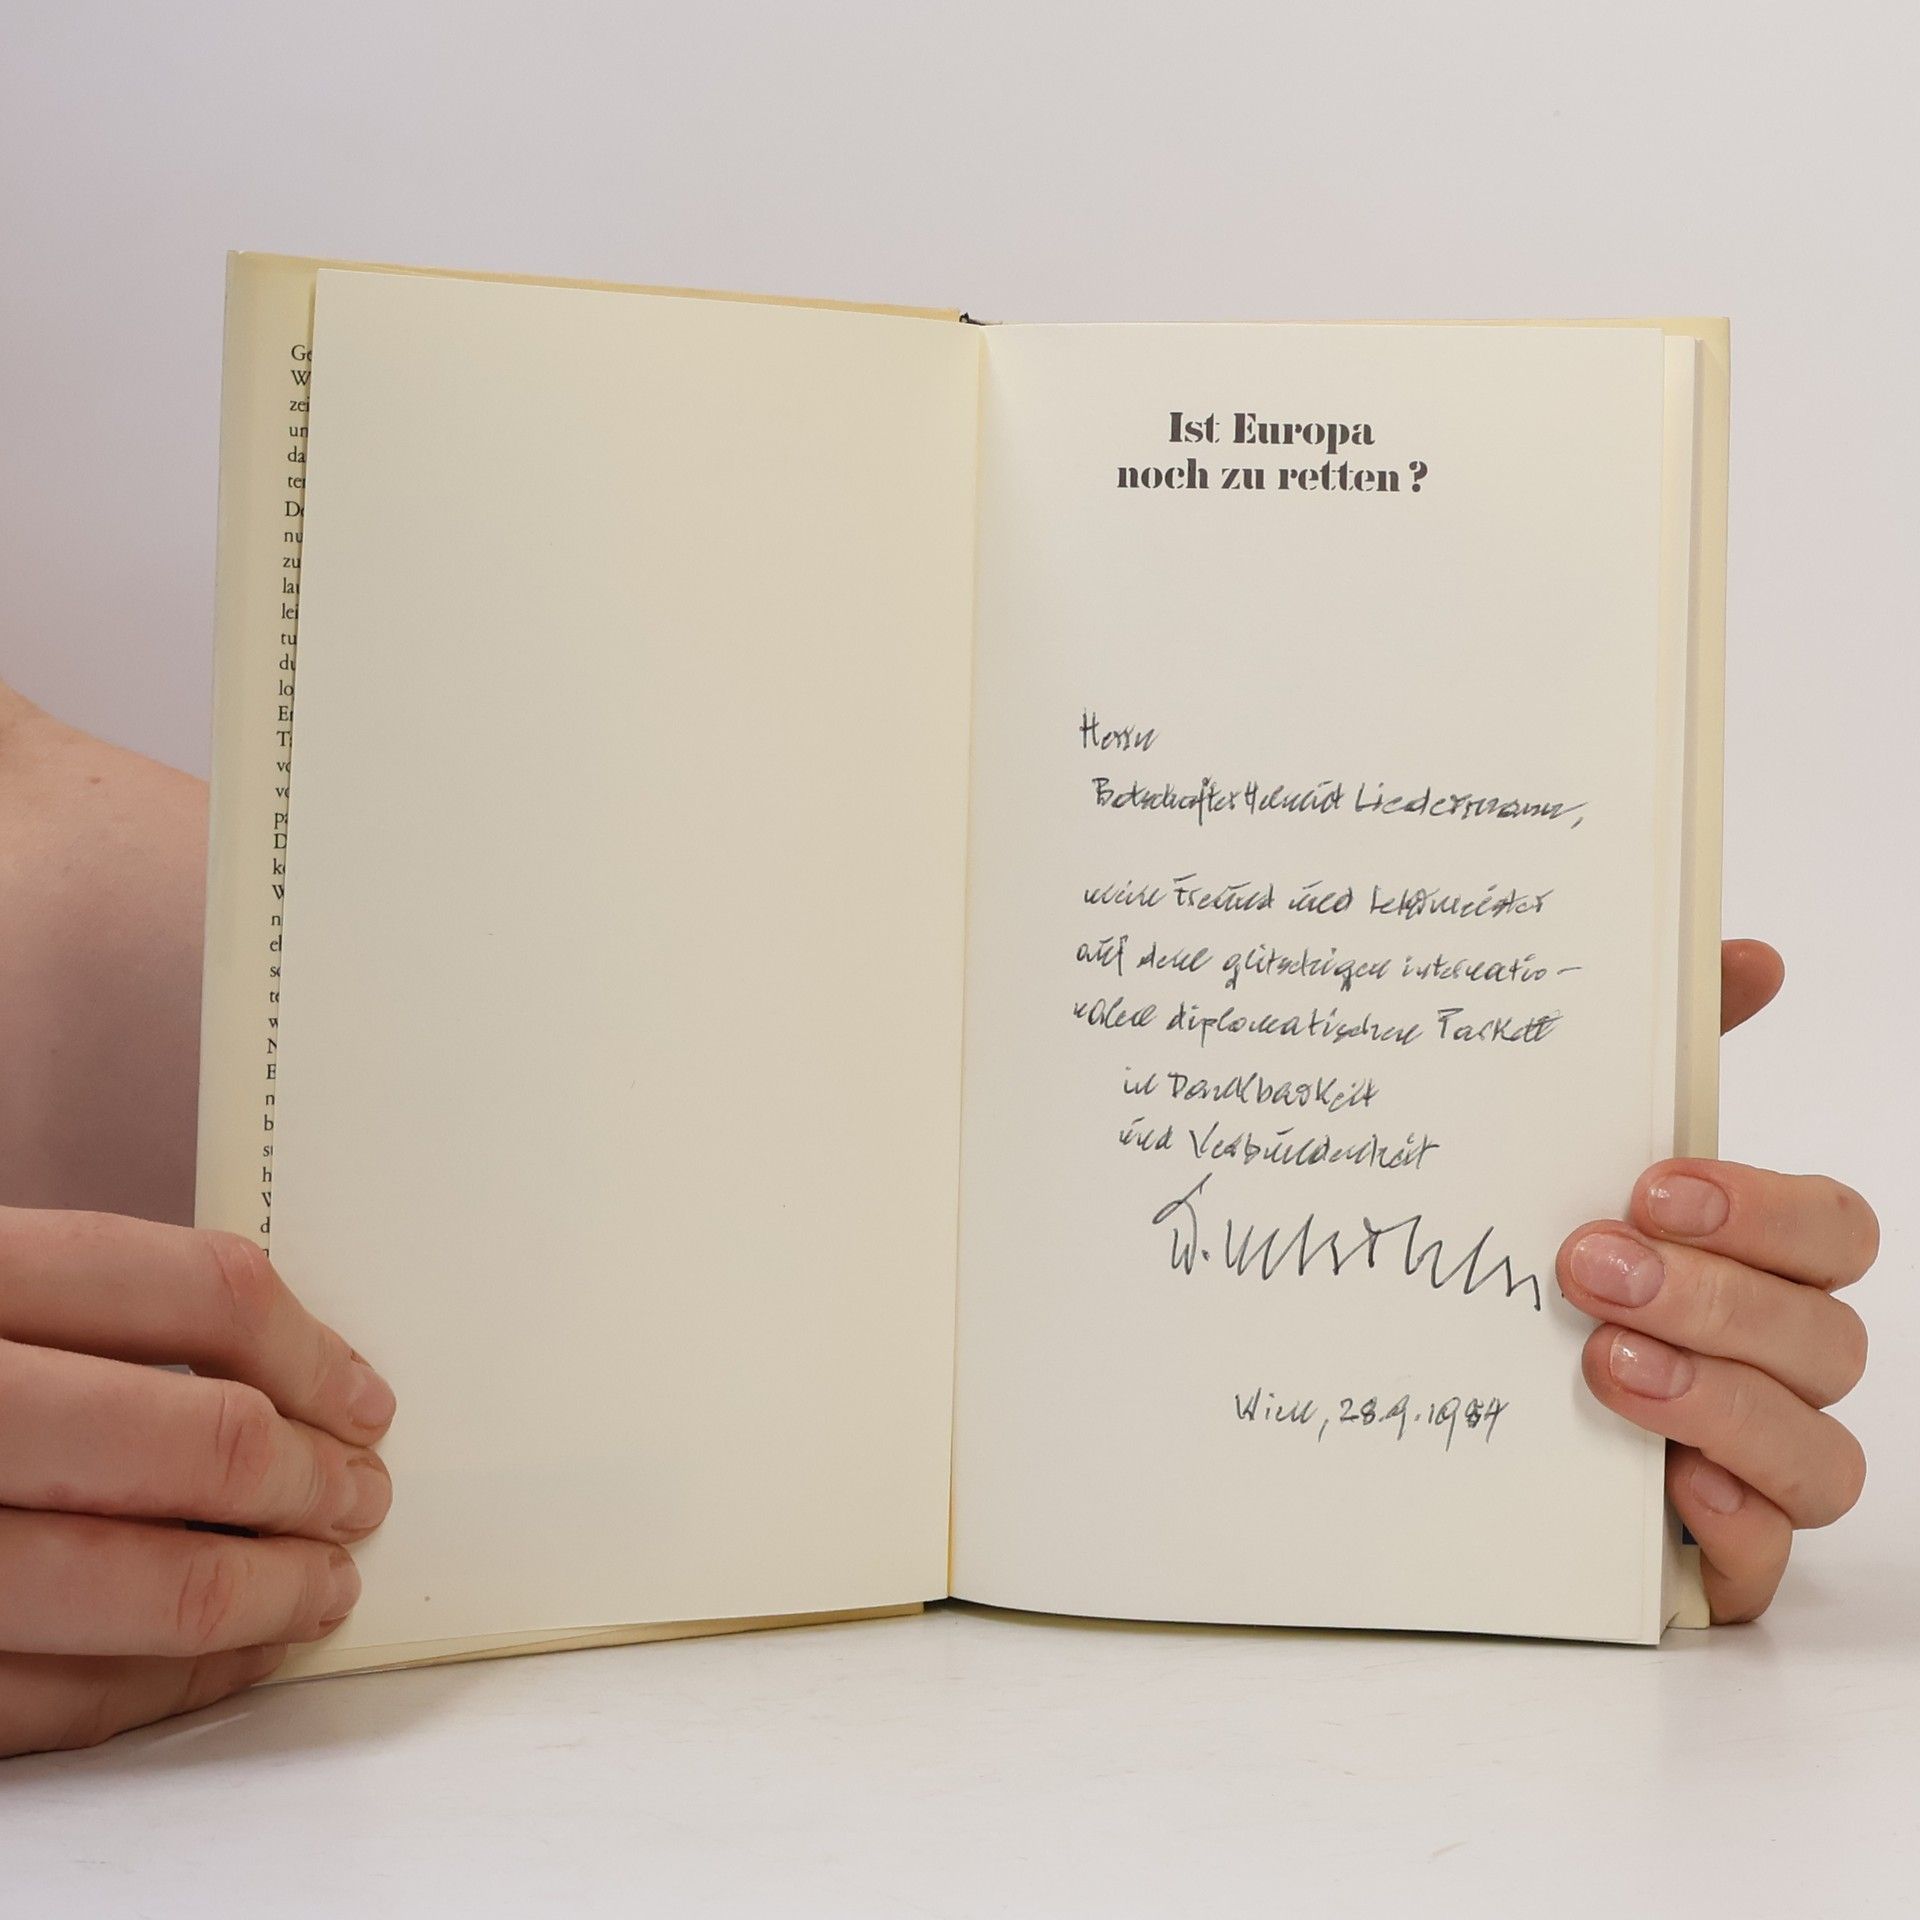 Ge
W
zei
un
da
ter
De
nu
zu
lau
lei
tu
du
lo
En
T
vo
vo
pa
D
ke
W
n
el
se
te
w
N
E
n
b
su
h
V
d
Ist Europa
noch zu retten?
Herrn
Botschafter Helmut Liedermann,
meinem Freund und Lehrmeister
auf dem glitschigen internatio-
nalen diplomatischen Parkett
in Dankbarkeit
und Verbundenheit
W.
Wien, 28.9.1984